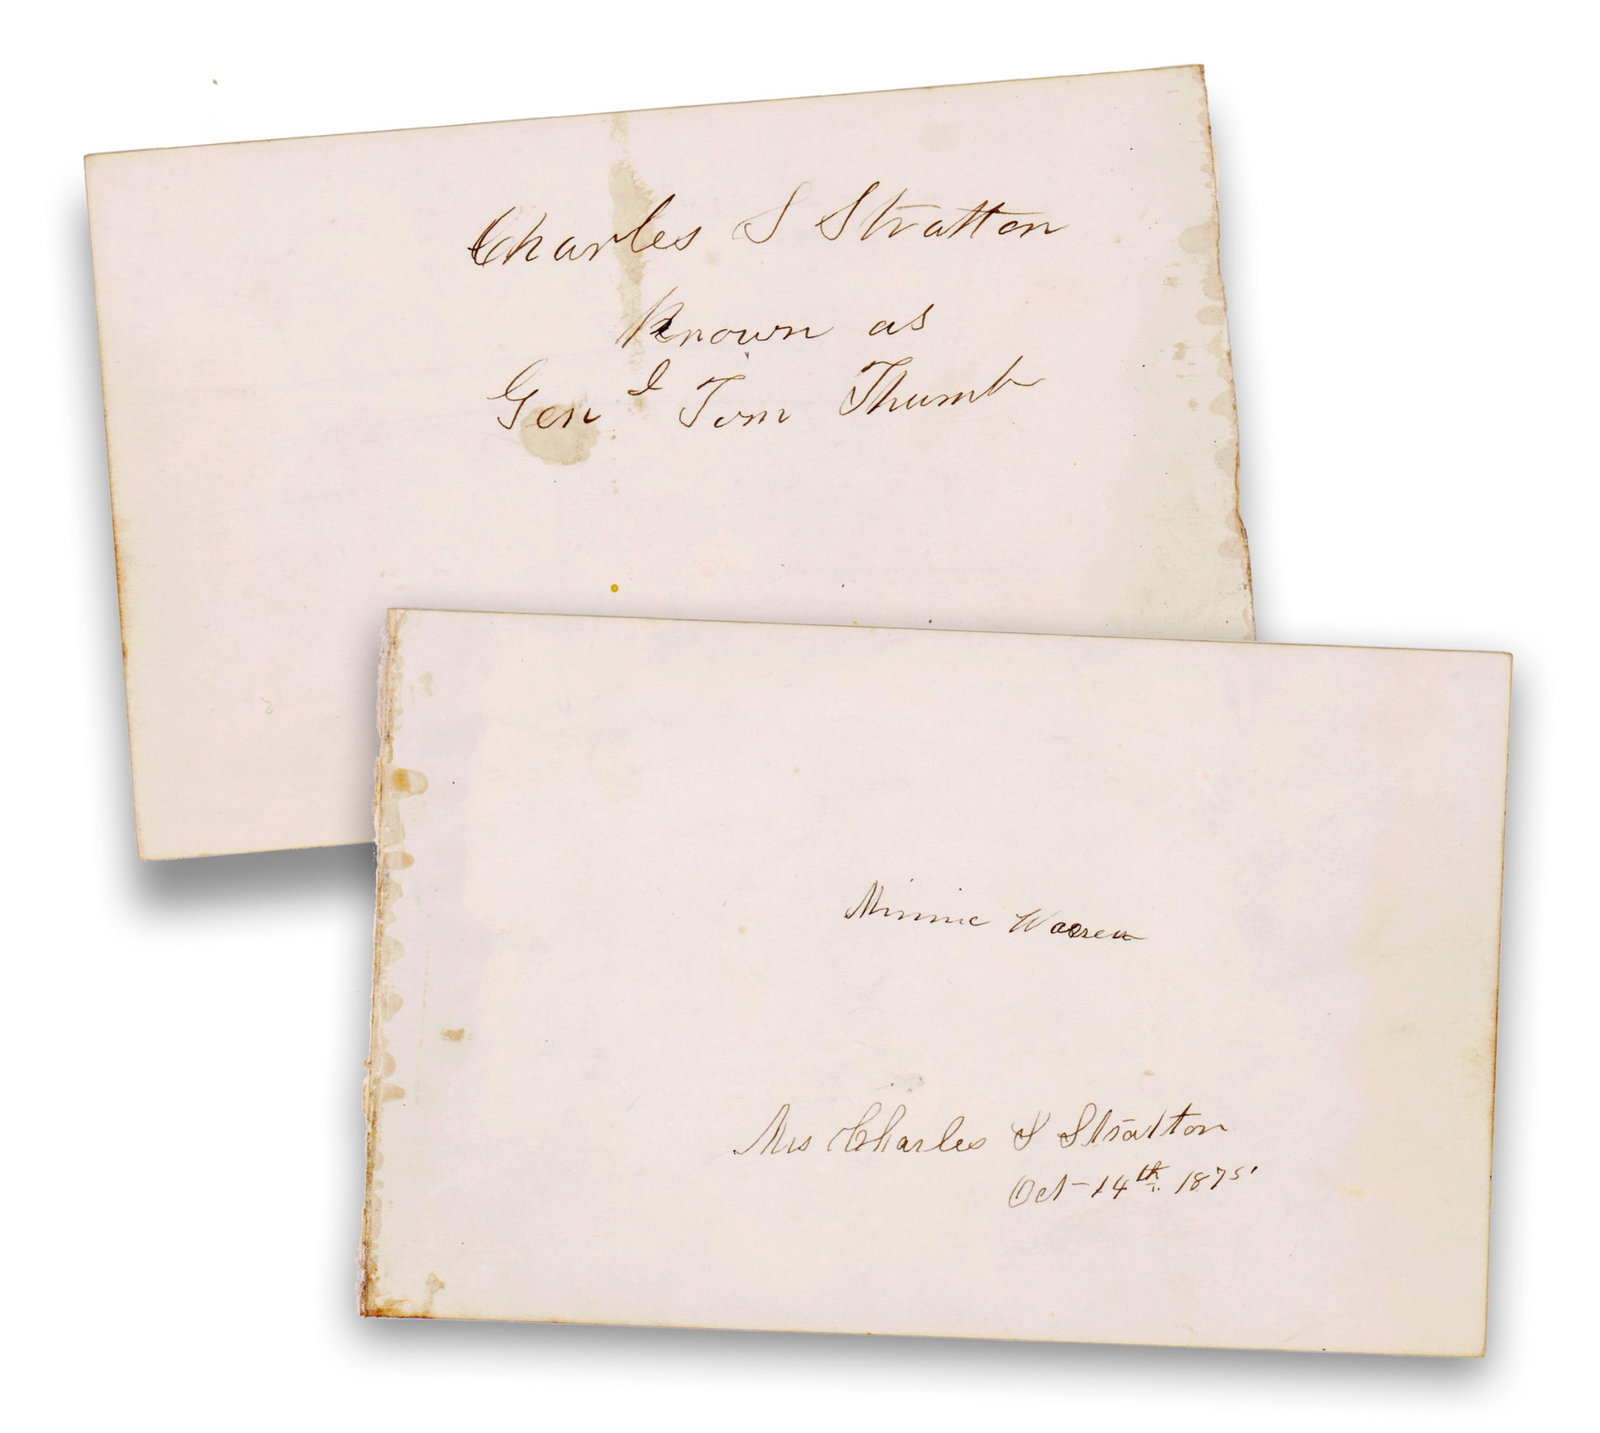 Charles S Stratton
Known as
Genl Tom Thumb
Minnie Warren
Mrs Charles S Stratton
Oct - 14th. 1875